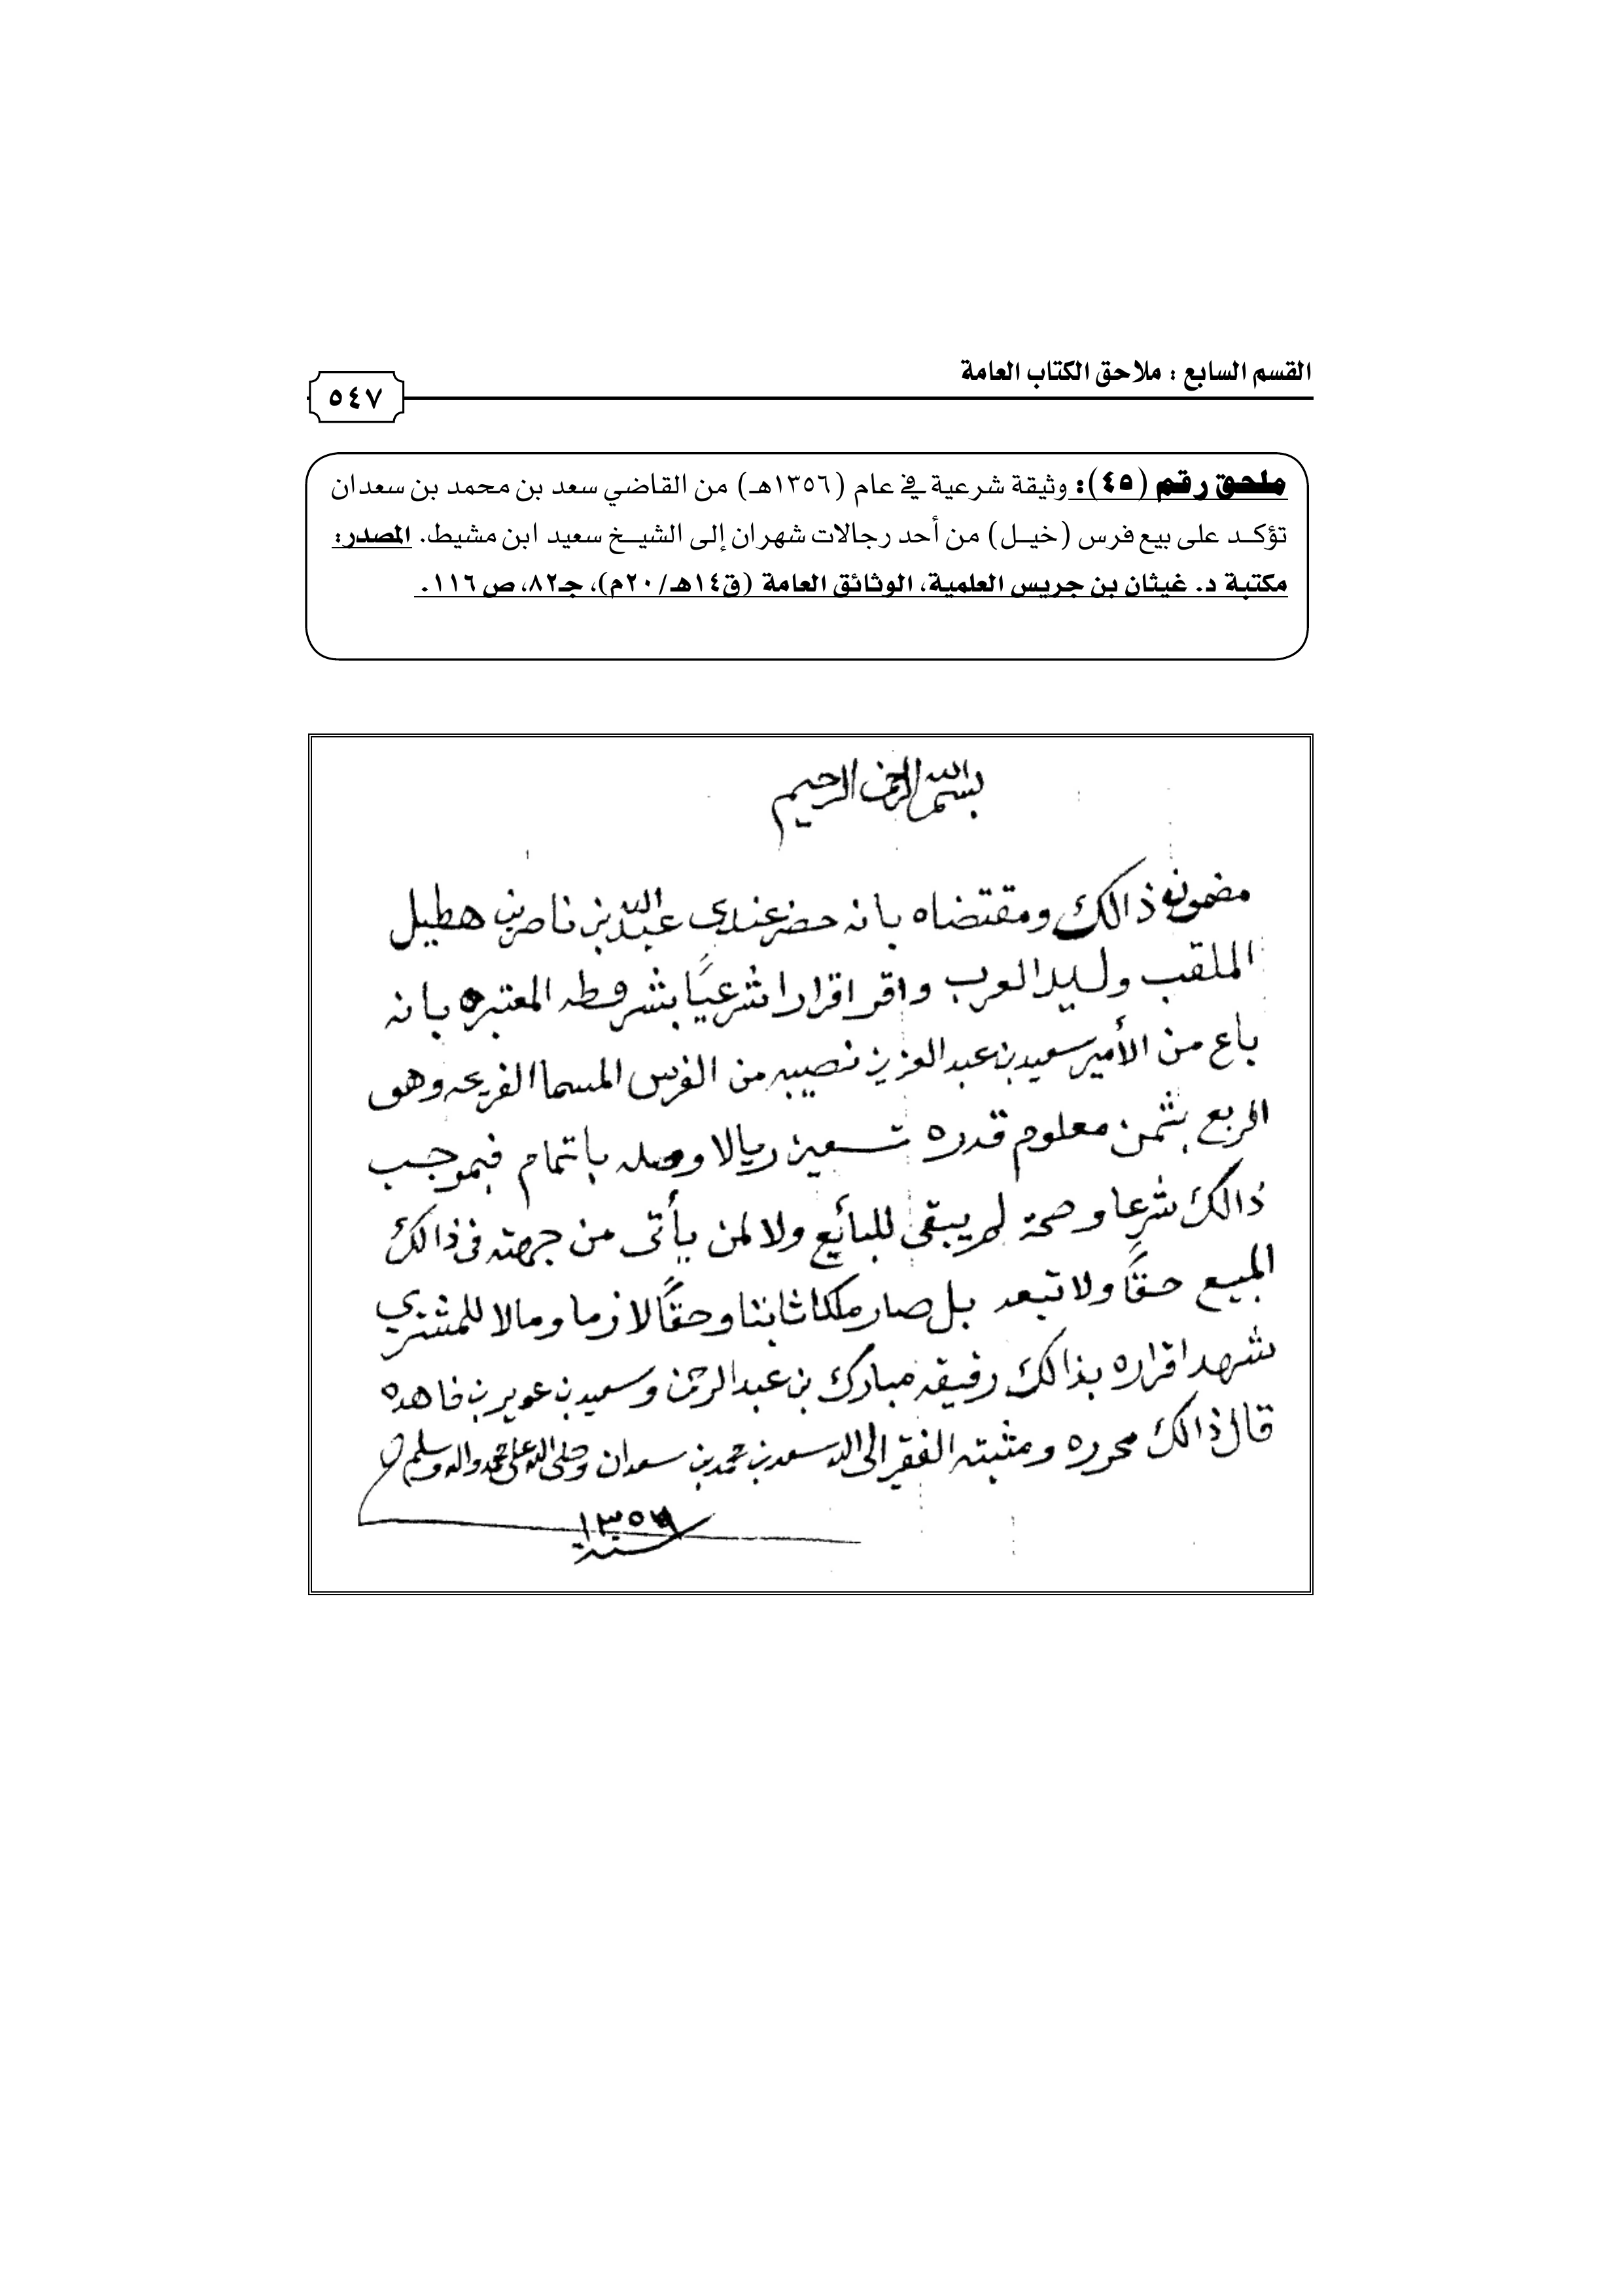 القسم السابع : ملاحق الكتاب العامة
٥٤٧
ملحق رقم (٤٥): وثيقة شرعية في عام (١٣٥٦هـ) من القاضي سعد بن محمد بن سعدان
تؤكد على بيع فرس (خيل) من أحد رجالات شهران إلى الشيخ سعيد ابن مشيط. المصدر:
مكتبة د. غيثان بن جريس العلمية، الوثائق العامة (ق١٤هـ/٢٠م)، جـ٨٢، ص١١٦.
بسم الله الرحمن الرحيم
مضمون ذالك ومقتضاه بانه حضر عندي عبدالله بن ناصر بن هطيل
الملقب وليد العرب واقر اقرارا شرعيًا بشروطه المعتبره بانه
باع من الأمير سعيد بن عبد العزيز نصيبه من الفرس المسما الفريحه وهو
الربع بثمن معلوم قدره تسعين ريالا وصله باتمام فبموجب
ذالك شرعا وصحة لم يبقى للبائع ولا لمن يأتى من جهته فى ذالك
المبيع حقًا ولا تبعد بل صار ملكا ثابتا وحقًا لازما ومالا للمشتري
شهد اقراره بذالك رفيقه مبارك بن عبد الرحمن وسعيد بن عوير بن فاهده
قال ذالك محرره ومثبته الفقير الى الله سعد بن محمد بن سعدان وصلى الله على محمد واله وسلم
سنة ١٣٥٦